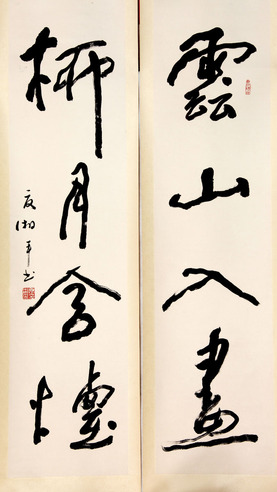 雲山入畫
柳月含煙
夏湘平书